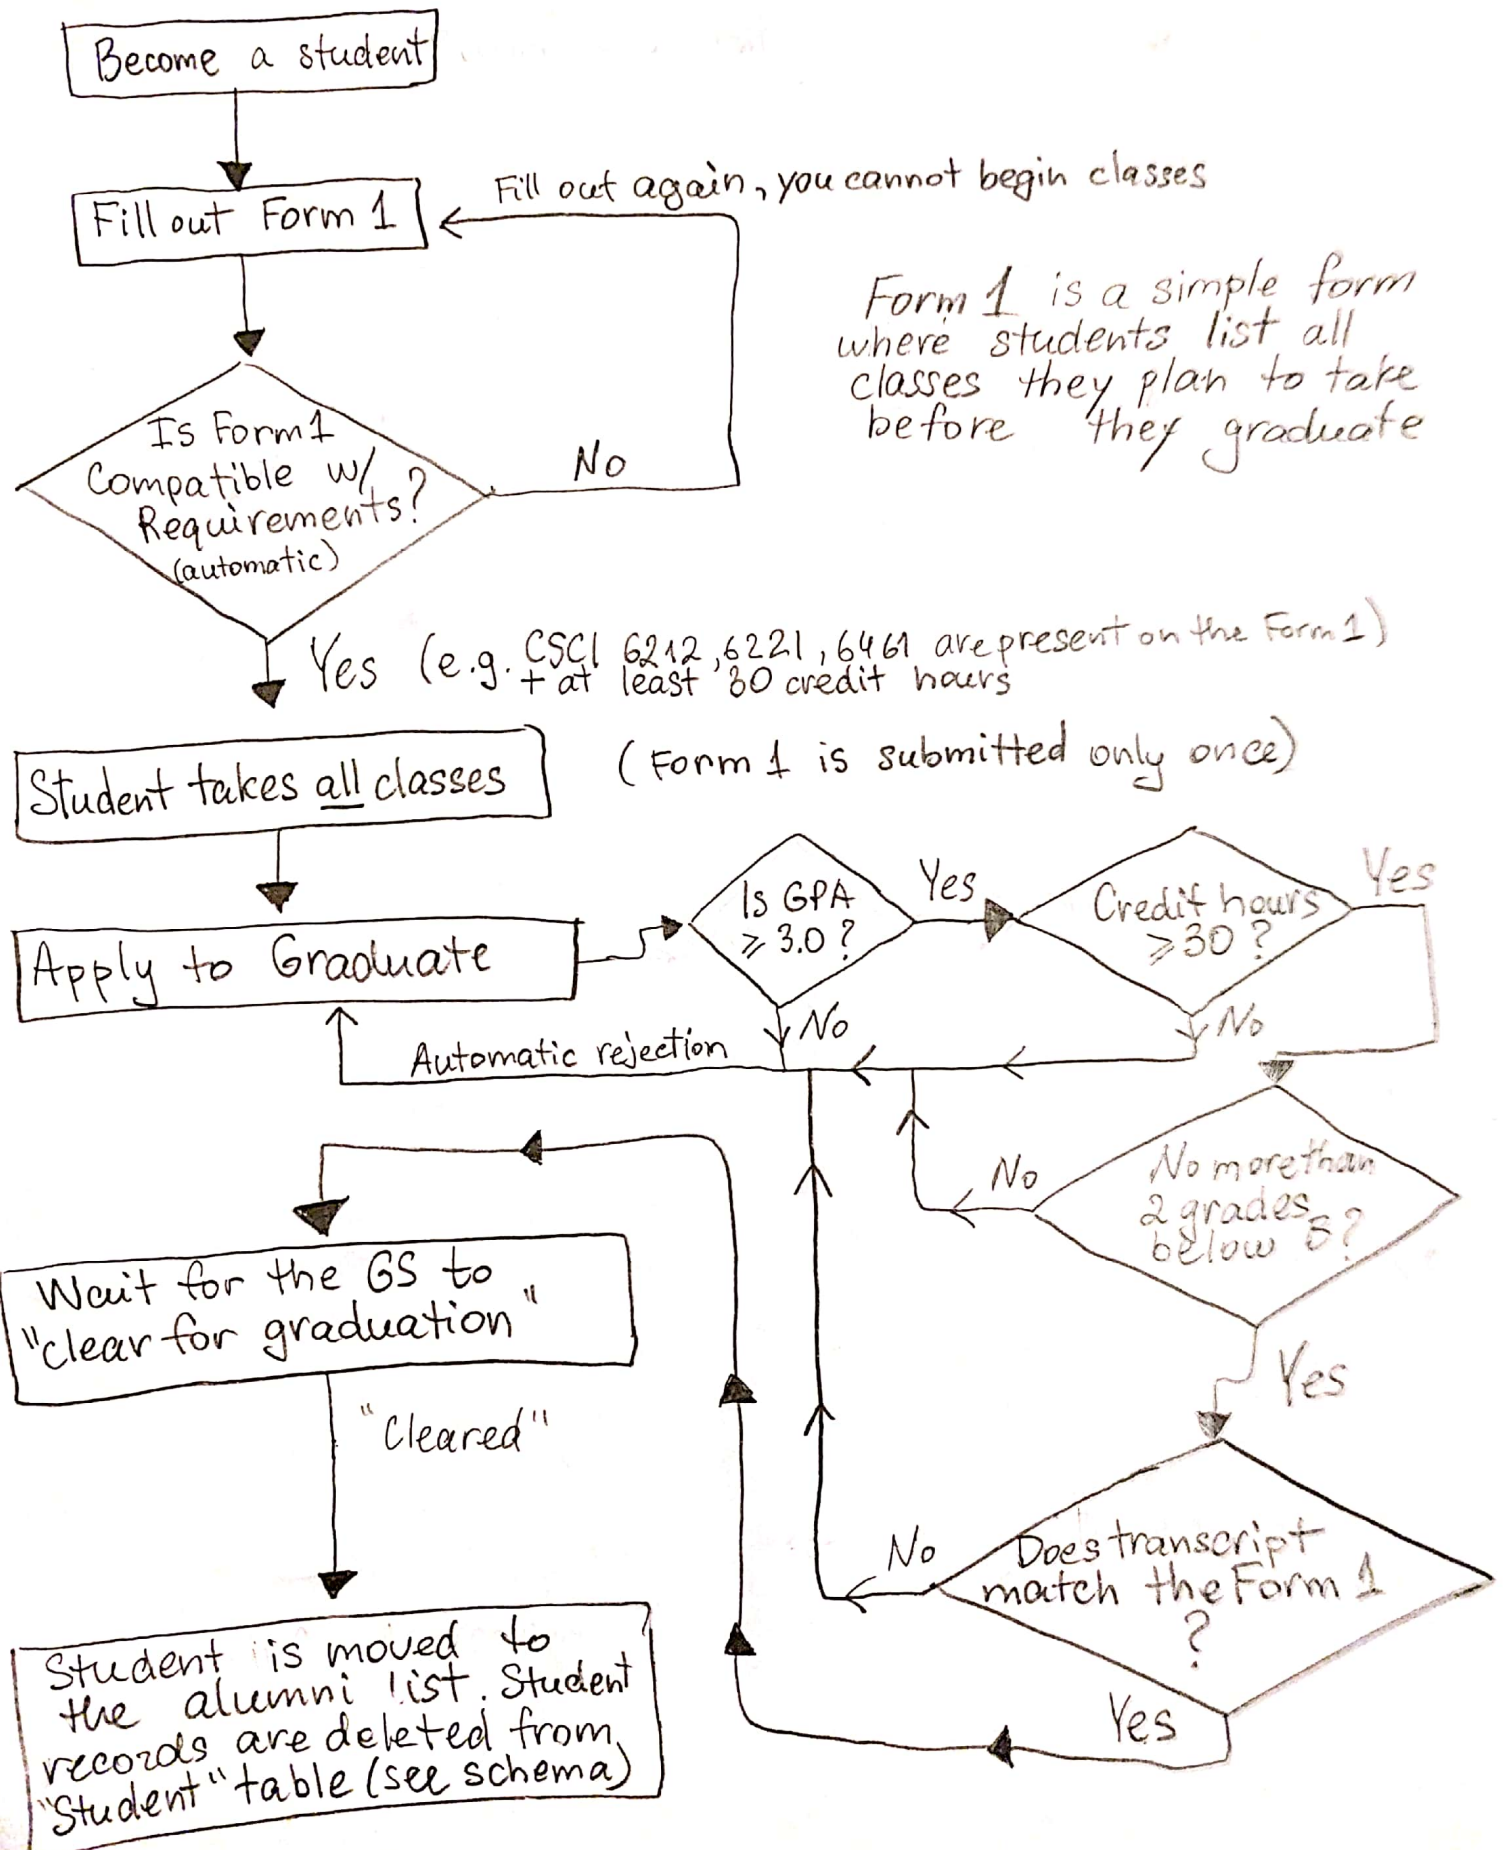 Become a student
Fill out again, you cannot begin classes
Fill out Form 1
Form 1 is a simple form
where students list all
classes they plan to take
before they graduate
Is Form 1
Compatible w/
Requirements?
(automatic)
No
Yes (e.g. CSCI 6212, 6221, 6461 are present on the Form 1)
+ at least 30 credit hours
(Form 1 is submitted only once)
Student takes all classes
Apply to Graduate
Is GPA
⩾ 3.0?
Yes
Credit hours
⩾ 30?
Yes
No
No
Automatic rejection
No more than
2 grades
below B?
No
Yes
Wait for the GS to
"clear for graduation"
"Cleared"
Does transcript
match the Form 1
?
No
Yes
Student is moved to
the alumni list. Student
records are deleted from
"Student" table (see schema)